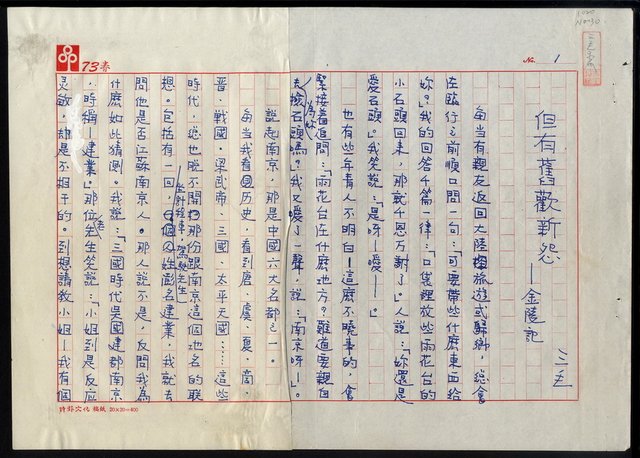 1020
No 30
三毛
No. 1
73春
但有舊歡新怨——金陵記
三毛
每當有親友返回大陸旅遊或歸鄉，總會
在臨行之前順口問一句：「可要帶些什麼東西給
妳？」我的回答千篇一律：「口袋裡放些雨花台的
小石頭回來，那就千恩萬謝了。」人說：「妳還是
愛石頭。」我笑說：「是呀！愛——。」
也有些年青人不明白——這麼不曉事的，會
緊接着追問：「雨花台在什麼地方？難道要親自
去為妳撿石頭嗎？」我又嗳了一聲，說：「南京呀——。」
說起南京，那是中國六大名都之一。
每當我看國历史，看到唐、虞、夏、商、
晋、戰國、梁武帝、三國、太平天國……這些
時代，總也脫不開那份跟南京這個地名的联
想。包括有一回，在計程車駕駛先生姓彭名建業，我就去
問他是否江蘇南京人。那人說不是，反問我為
什麼如此猜測。我說：「三國時代吳國建都南京
，時稱——建業。」那位老先生笑說：「小姐到是反应
灵敏，却是不相干的。到想請教小姐——我有個
詩邨文化 稿紙 20×20=400